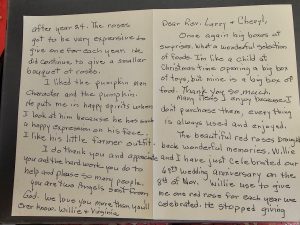 after year 24. The roses
got to be very expensive to
give one for each year. He
did continue to give a smaller
bouquet of roses.
I liked the pumpkin man
character and the pumpkin.
He puts me in happy spirits when
I look at him because he has such
a happy expression on his face.
I like his little farmer outfit.
I do thank you and appreciate
you and the hard work you do to
help and please so many people.
you are two Angels sent from
God. We love you more than you'll
ever know. Willie & Virginia
Dear Rev. Larry & Cheryl,
Once again big boxes of
surprises. What a wonderful selection
of foods. I'm like a child at
Christmas time opening a big box
of toys, but mine is a big box of
food. Thank you so much.
Many items I enjoy because I
don't purchase them, every thing
is always used and enjoyed.
The beautiful red roses brought
back wonderful memories. Willie
and I have just celebrated our
wedding anniversary on the
8th of Nov. Willie use to give
me one red rose for each year we
celebrated. He stopped giving